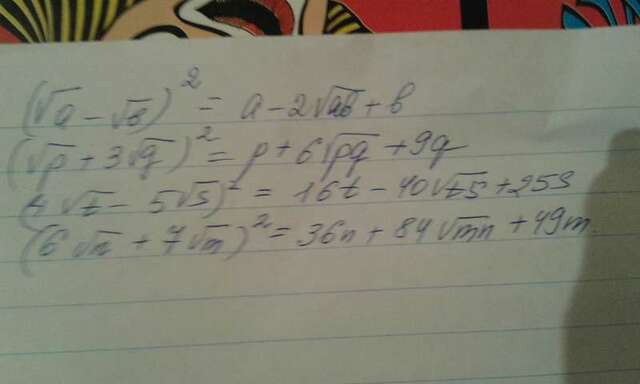 (√a - √b)² = a - 2√ab + b
(√p + 3√q)² = p + 6√pq + 9q
(4√t - 5√s)² = 16t - 40√ts + 25s
(6√n + 7√m)² = 36n + 84√mn + 49m